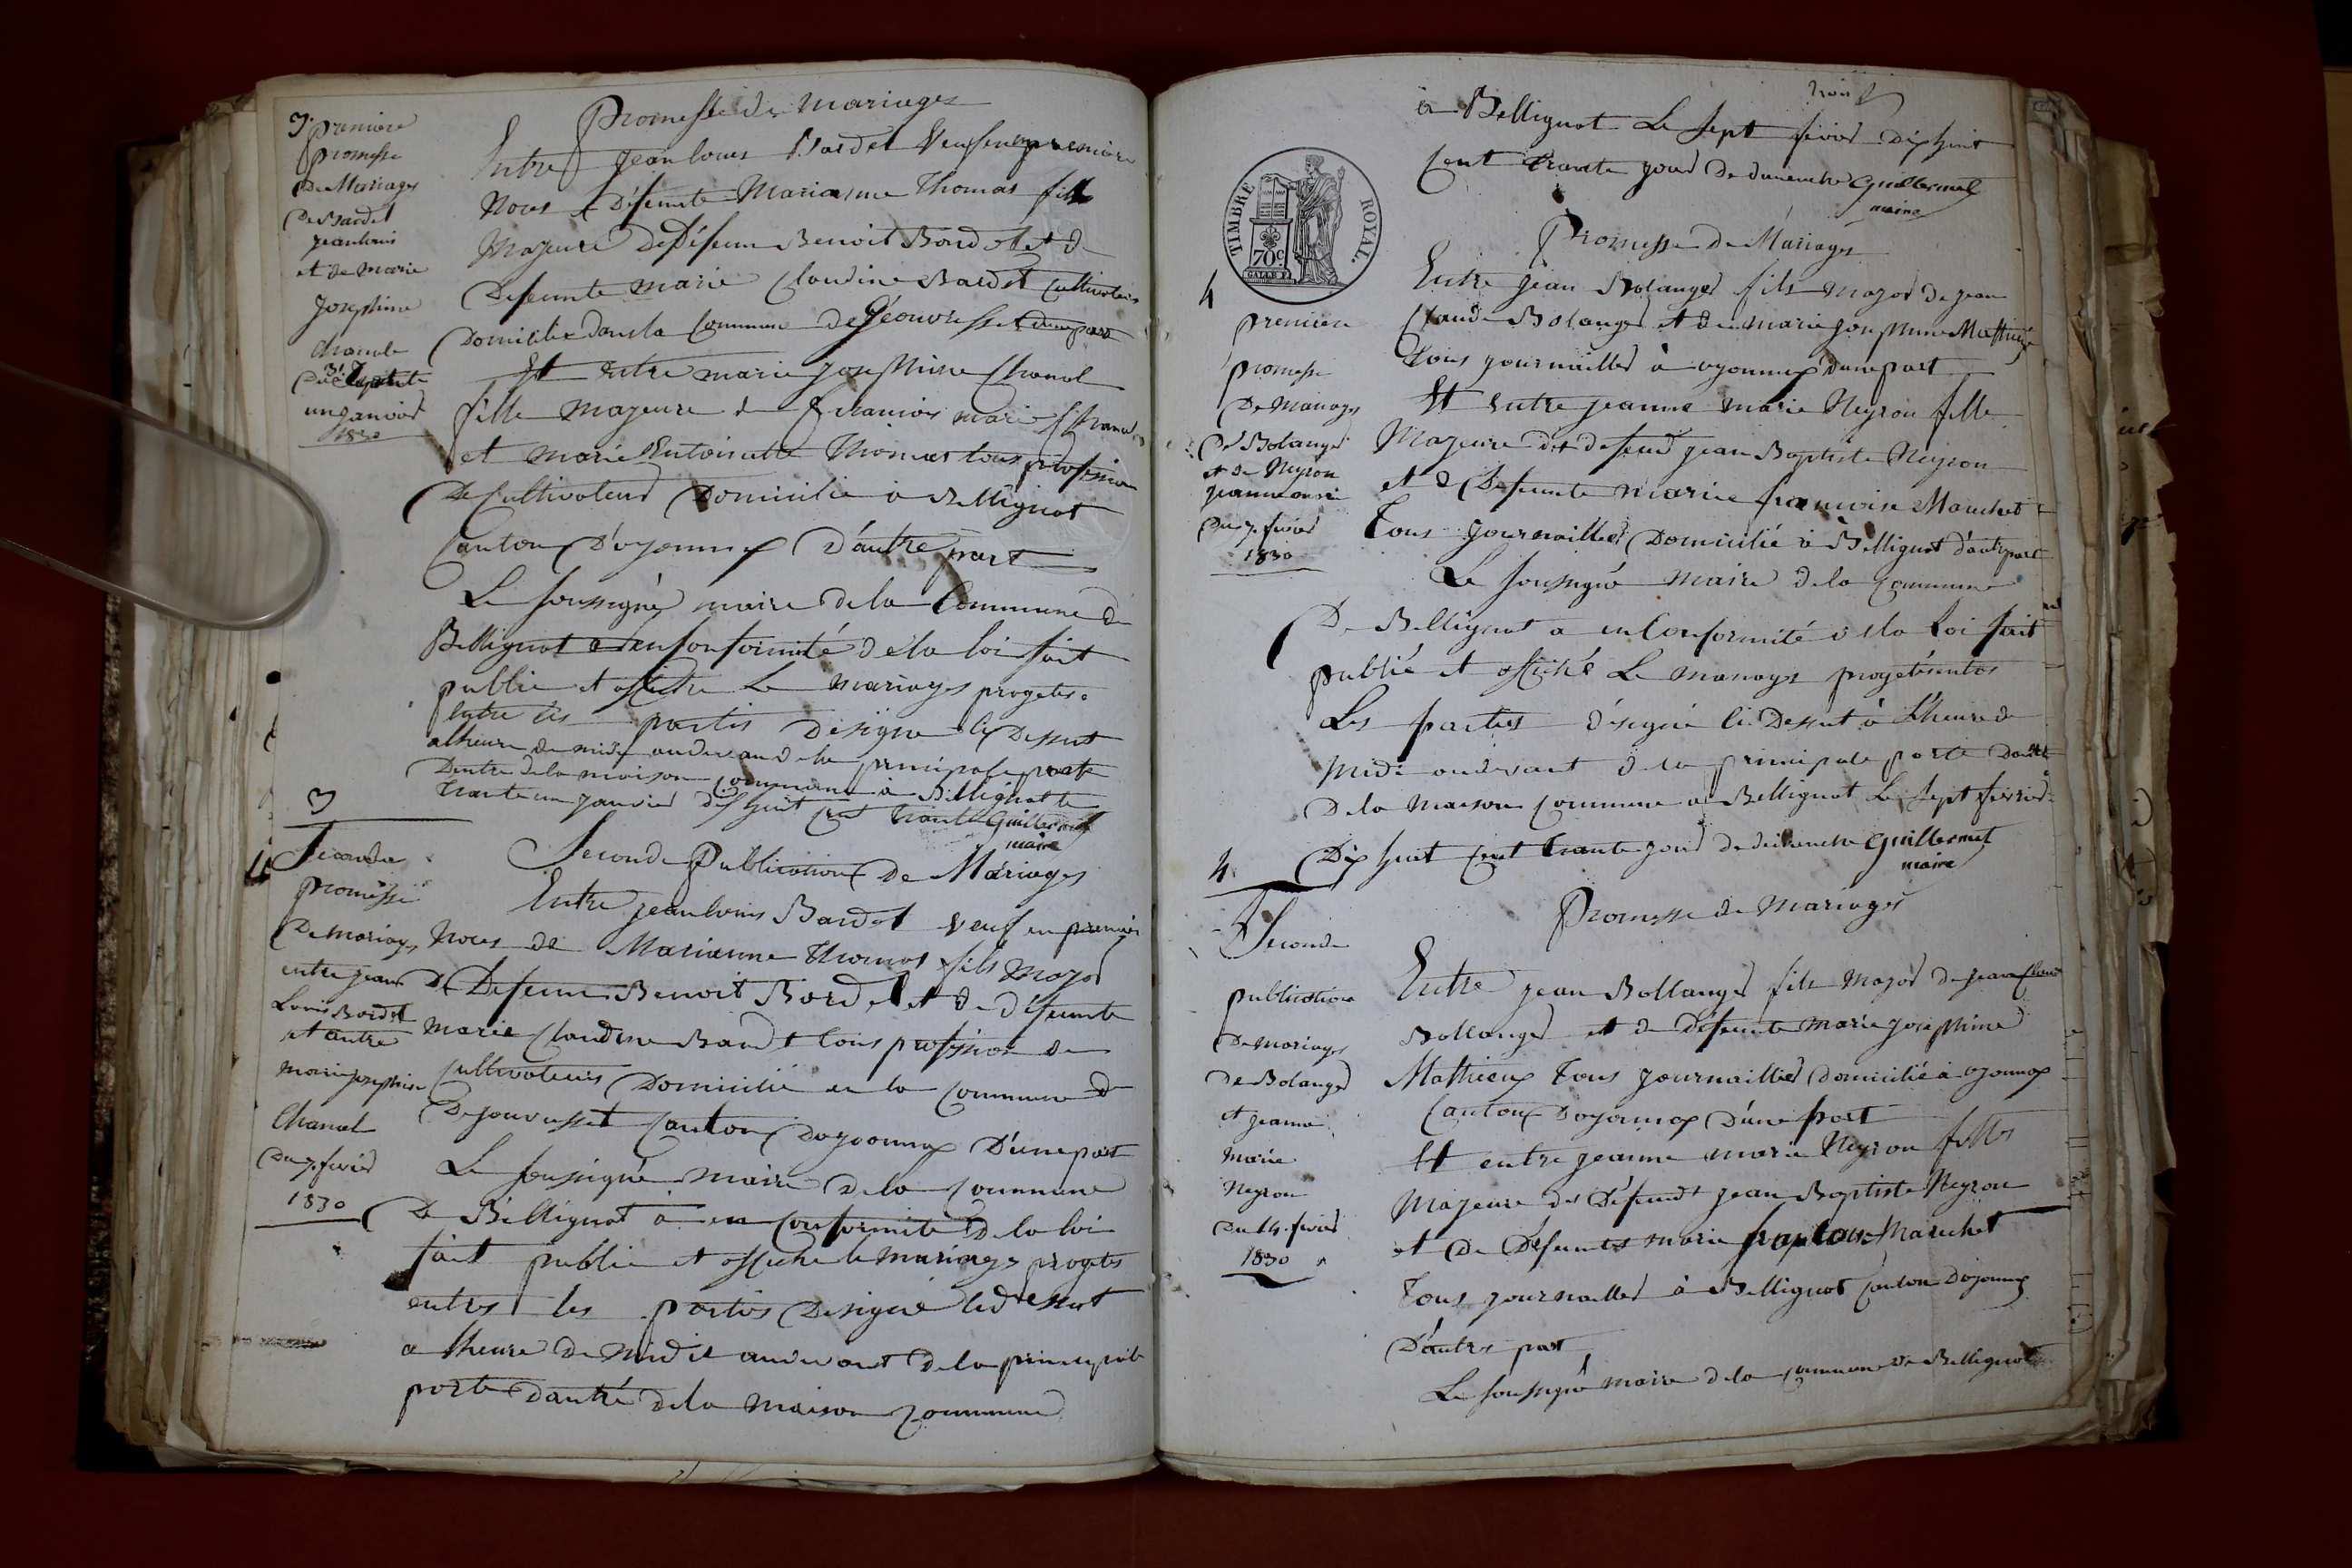 3.
premiere
promesse
De Mariages
De Bardet
jean louis
et de marie
Josephine
Chanal
31
un janvier
1830
Promesse de mariages
Entre jean louis Bardet Veuf en premiere
Noces de Défunte Marianne Thomas fils
Majeure de Défunt Benoit Bardet et de
Defeunte marie Claudine Bardet Cultivateurs
Domicilie dans la Commune de Géouvresset d'une part
Et entre marie josephine Chanal
fille majeure de francois marie Chanal
et marie Entoinette Thomas tous profession
De Cultivateurs Domicilie à Bellignat
Canton D'oyonnax D'autre part
Le soussigné maire de la Commune de
Bellignat a en Conformité de la loi fait
publie et affiche Le mariages progetes
Entre les partis désigne ci Dessut
a lheure de midi au devand de la principale porte
Dentre de la maison Commune à Bellignat le
Trante un janvier dix huit Cent trante Guillermet
maire
3
4
Seconde
promesse
De mariages
entre jean
Louis Bardet
et autre
marie josephine
Chanal
Du 7. fevrier
1830
Seconde Publication De Mariages
Entre jean louis Bardet Veuf en premier
Noces de Marianne Thomas fils Major
De Defeunt Benoit Bardet et de défeunte
Marie Claudine Bardet tous profession de
Cultivateurs Domicilié en la Commune de
De jouvresset Canton Doyoonnax D'une part
Le soussigné maire de la Commune
De Bellignat à en Conformité de la loi
fait publie et affiche le mariages progetes
entres les partis Designé ci dessut
a lheure de midi au devant de la principale
porte dantré de la maison Commune
trois
à Bellignat Le sept fevrier dix huit
Cent trante jour de dimenche Guillermet
maire
TIMBRE ROYAL.
70c
4
premiere
promesse
De mariages
De Bolanger
et de Neyron
jeanne marie
Du 7. fevrier
1830
Promesse de Mariages
Entre jean Bolanger fils major de jean
Claude Bolanger et de marie josephine Mathieux
tous journaillier à oyonnax d'une part
Et Entre jeanne marie Neyron fille
Majeure de defeud jean Baptiste Neyron
et de Defeunte marie francoise Maréchet
Tous journaillier Domicilié à Bellignat d'autre part
Le soussigné maire de la Commune
De Bellignat a en Conformité de la loi fait
publié et affiché Le mariages progeté entre
Les parties désigné ci Dessut à l'heure de
Midi au devant de la principale porte dantré
De la maison Commune a Bellignat Le sept fevrier
Dix huit Cent trante jour de dimenche Guillermet
maire
4
Seconde
publication
De mariages
de Bolanger
et jeanne
Marie
Neyron
Du 14. fevrier
1830
Promesse de Mariages
Entre jean Bollanger fils Major de jean Claude
Bollanger et de défeunte marie josephine
Mathieux Tous journaillier domicilié à oyonnax
Canton Doyonnax D'une part
Et entre jeanne marie Neyron filles
Majeure de Défeundt jean Baptiste Neyron
et De Defeuntes marie Maréchet
Tous journaillier à Bellignat Canton Doyonnax
D'autres part
Le soussigné maire de la Commune de Bellignat